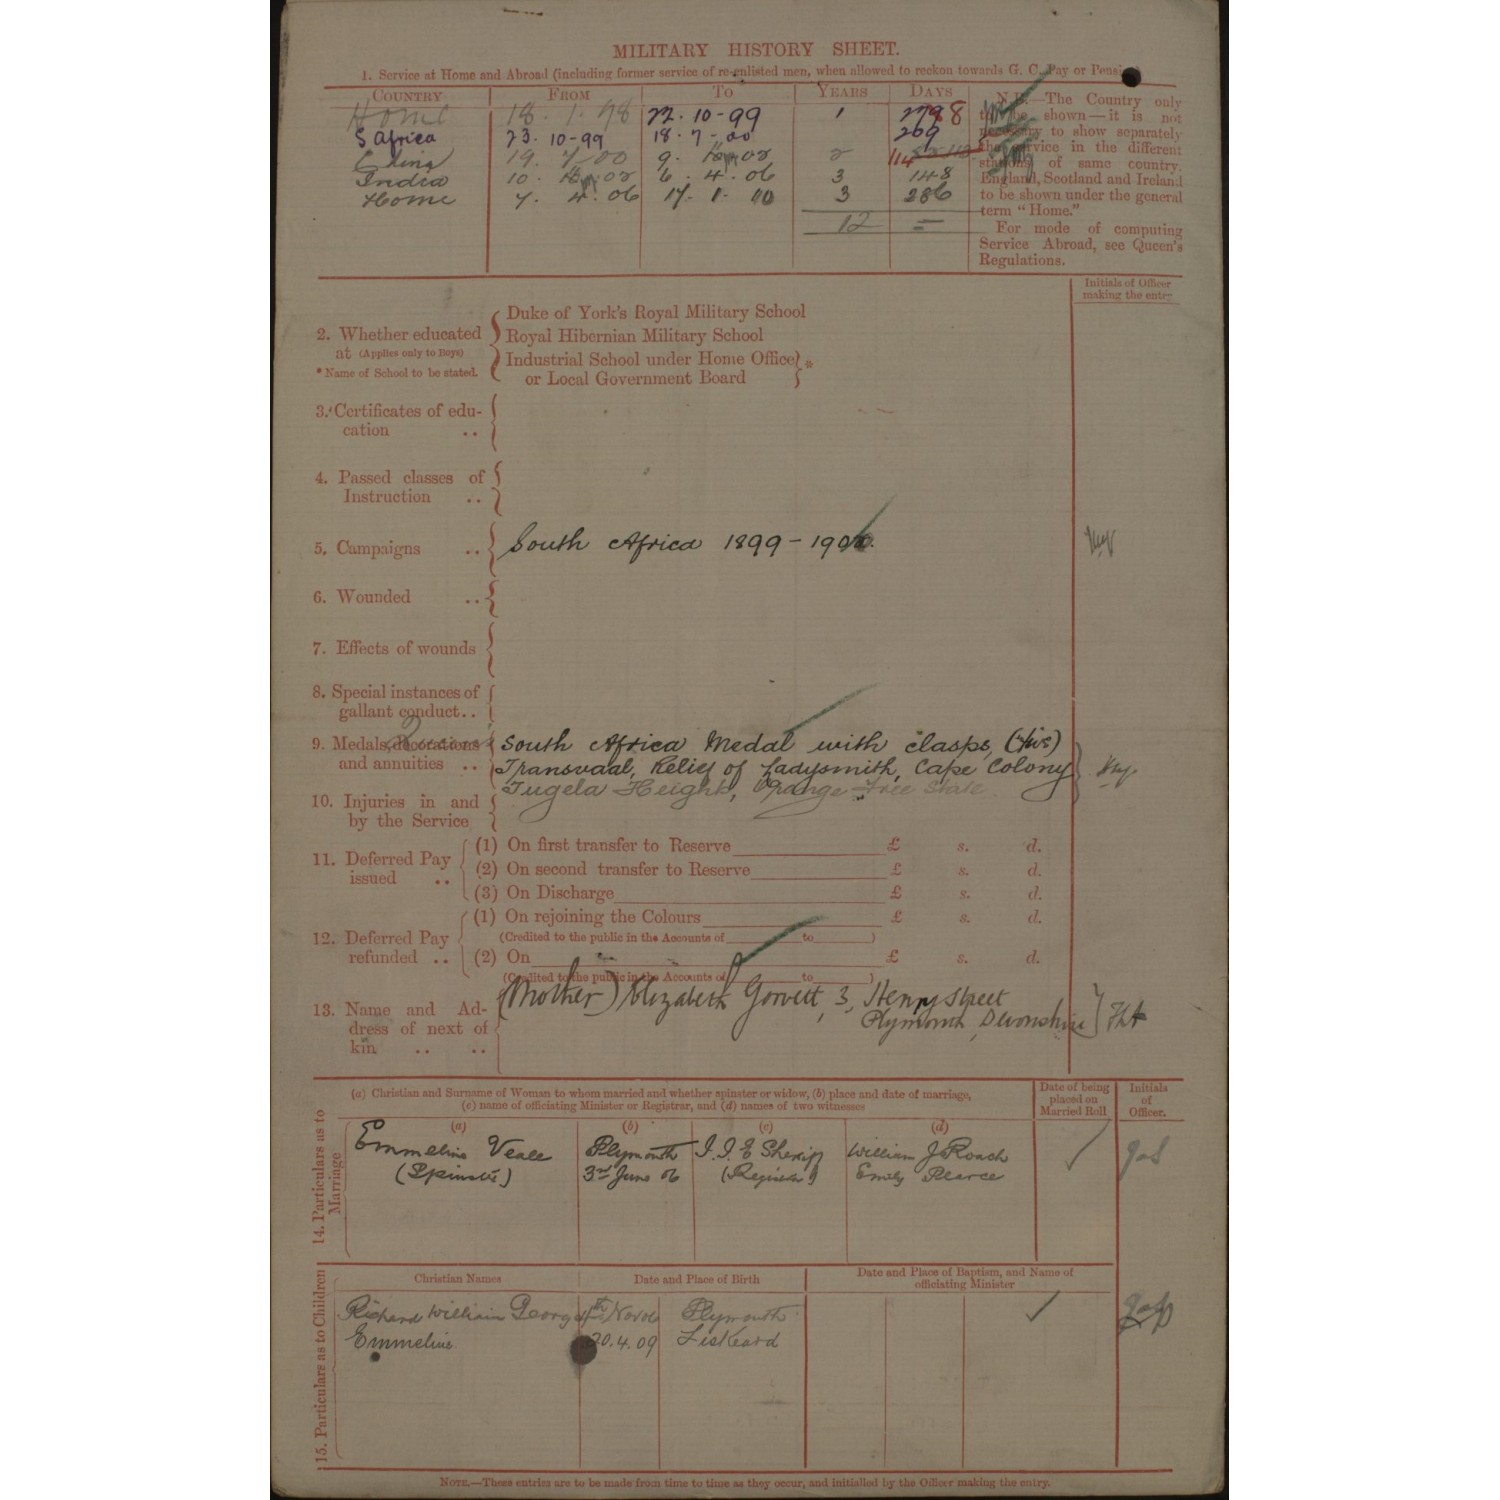 MILITARY HISTORY SHEET.
1. Service at Home and Abroad (including former service of re-enlisted men, when allowed to reckon towards G. C. Pay or Pension)
COUNTRY FROM TO YEARS DAYS
Home 18. 1. 98 22. 10-99 1 278
S Africa 23. 10-99 18. 7-00 269
China 19. 7-00 9. 02 2 114
India 10. 02 6. 4. 06 3 148
Home 7. 4. 06 17. 1. 10 3 286
12 =
N.B.—The Country only
to be shown—it is not
necessary to show separately
the service in the different
stations of same country.
England, Scotland and Ireland
to be shown under the general
term "Home."
For mode of computing
Service Abroad, see Queen's
Regulations.
Initials of Officer
making the entry
2. Whether educated
at (Applies only to Boys)
* Name of School to be stated.
Duke of York's Royal Military School
Royal Hibernian Military School
Industrial School under Home Office
or Local Government Board *
3. Certificates of edu-
cation ..
4. Passed classes of
Instruction ..
5. Campaigns .. South Africa 1899-190
6. Wounded ..
7. Effects of wounds
8. Special instances of
gallant conduct..
9. Medals, decorations
and annuities ..
Queen's South Africa Medal with clasps, (five)
Transvaal, Relief of Ladysmith, Cape Colony
Tugela Heights, Orange Free State
10. Injuries in and
by the Service
11. Deferred Pay
issued ..
(1) On first transfer to Reserve £ s. d.
(2) On second transfer to Reserve £ s. d.
(3) On Discharge £ s. d.
12. Deferred Pay
refunded ..
(1) On rejoining the Colours £ s. d.
(Credited to the public in the Accounts of to )
(2) On £ s. d.
(Credited to the public in the Accounts of to )
13. Name and Ad-
dress of next of
kin .. ..
(Mother) Elizabeth Gorvett, 3, Henry Street
Plymouth, Devonshire
14. Particulars as to
Marriage
(a) Christian and Surname of Woman to whom married and whether spinster or widow, (b) place and date of marriage,
(c) name of officiating Minister or Registrar, and (d) names of two witnesses
Date of being
placed on
Married Roll
Initials
of
Officer.
(a) (b) (c) (d)
Emmeline Veale Plymouth J. J. E Sheriff William J Roach
(Spinster) 3rd June 06 (Registrar) Emily Pearce
15. Particulars as to Children
Christian Names Date and Place of Birth Date and Place of Baptism, and Name of
officiating Minister
Richard William George 4th Nov 06 Plymouth
Emmeline 20.4.09 Liskeard
NOTE.—These entries are to be made from time to time as they occur, and initialled by the Officer making the entry.